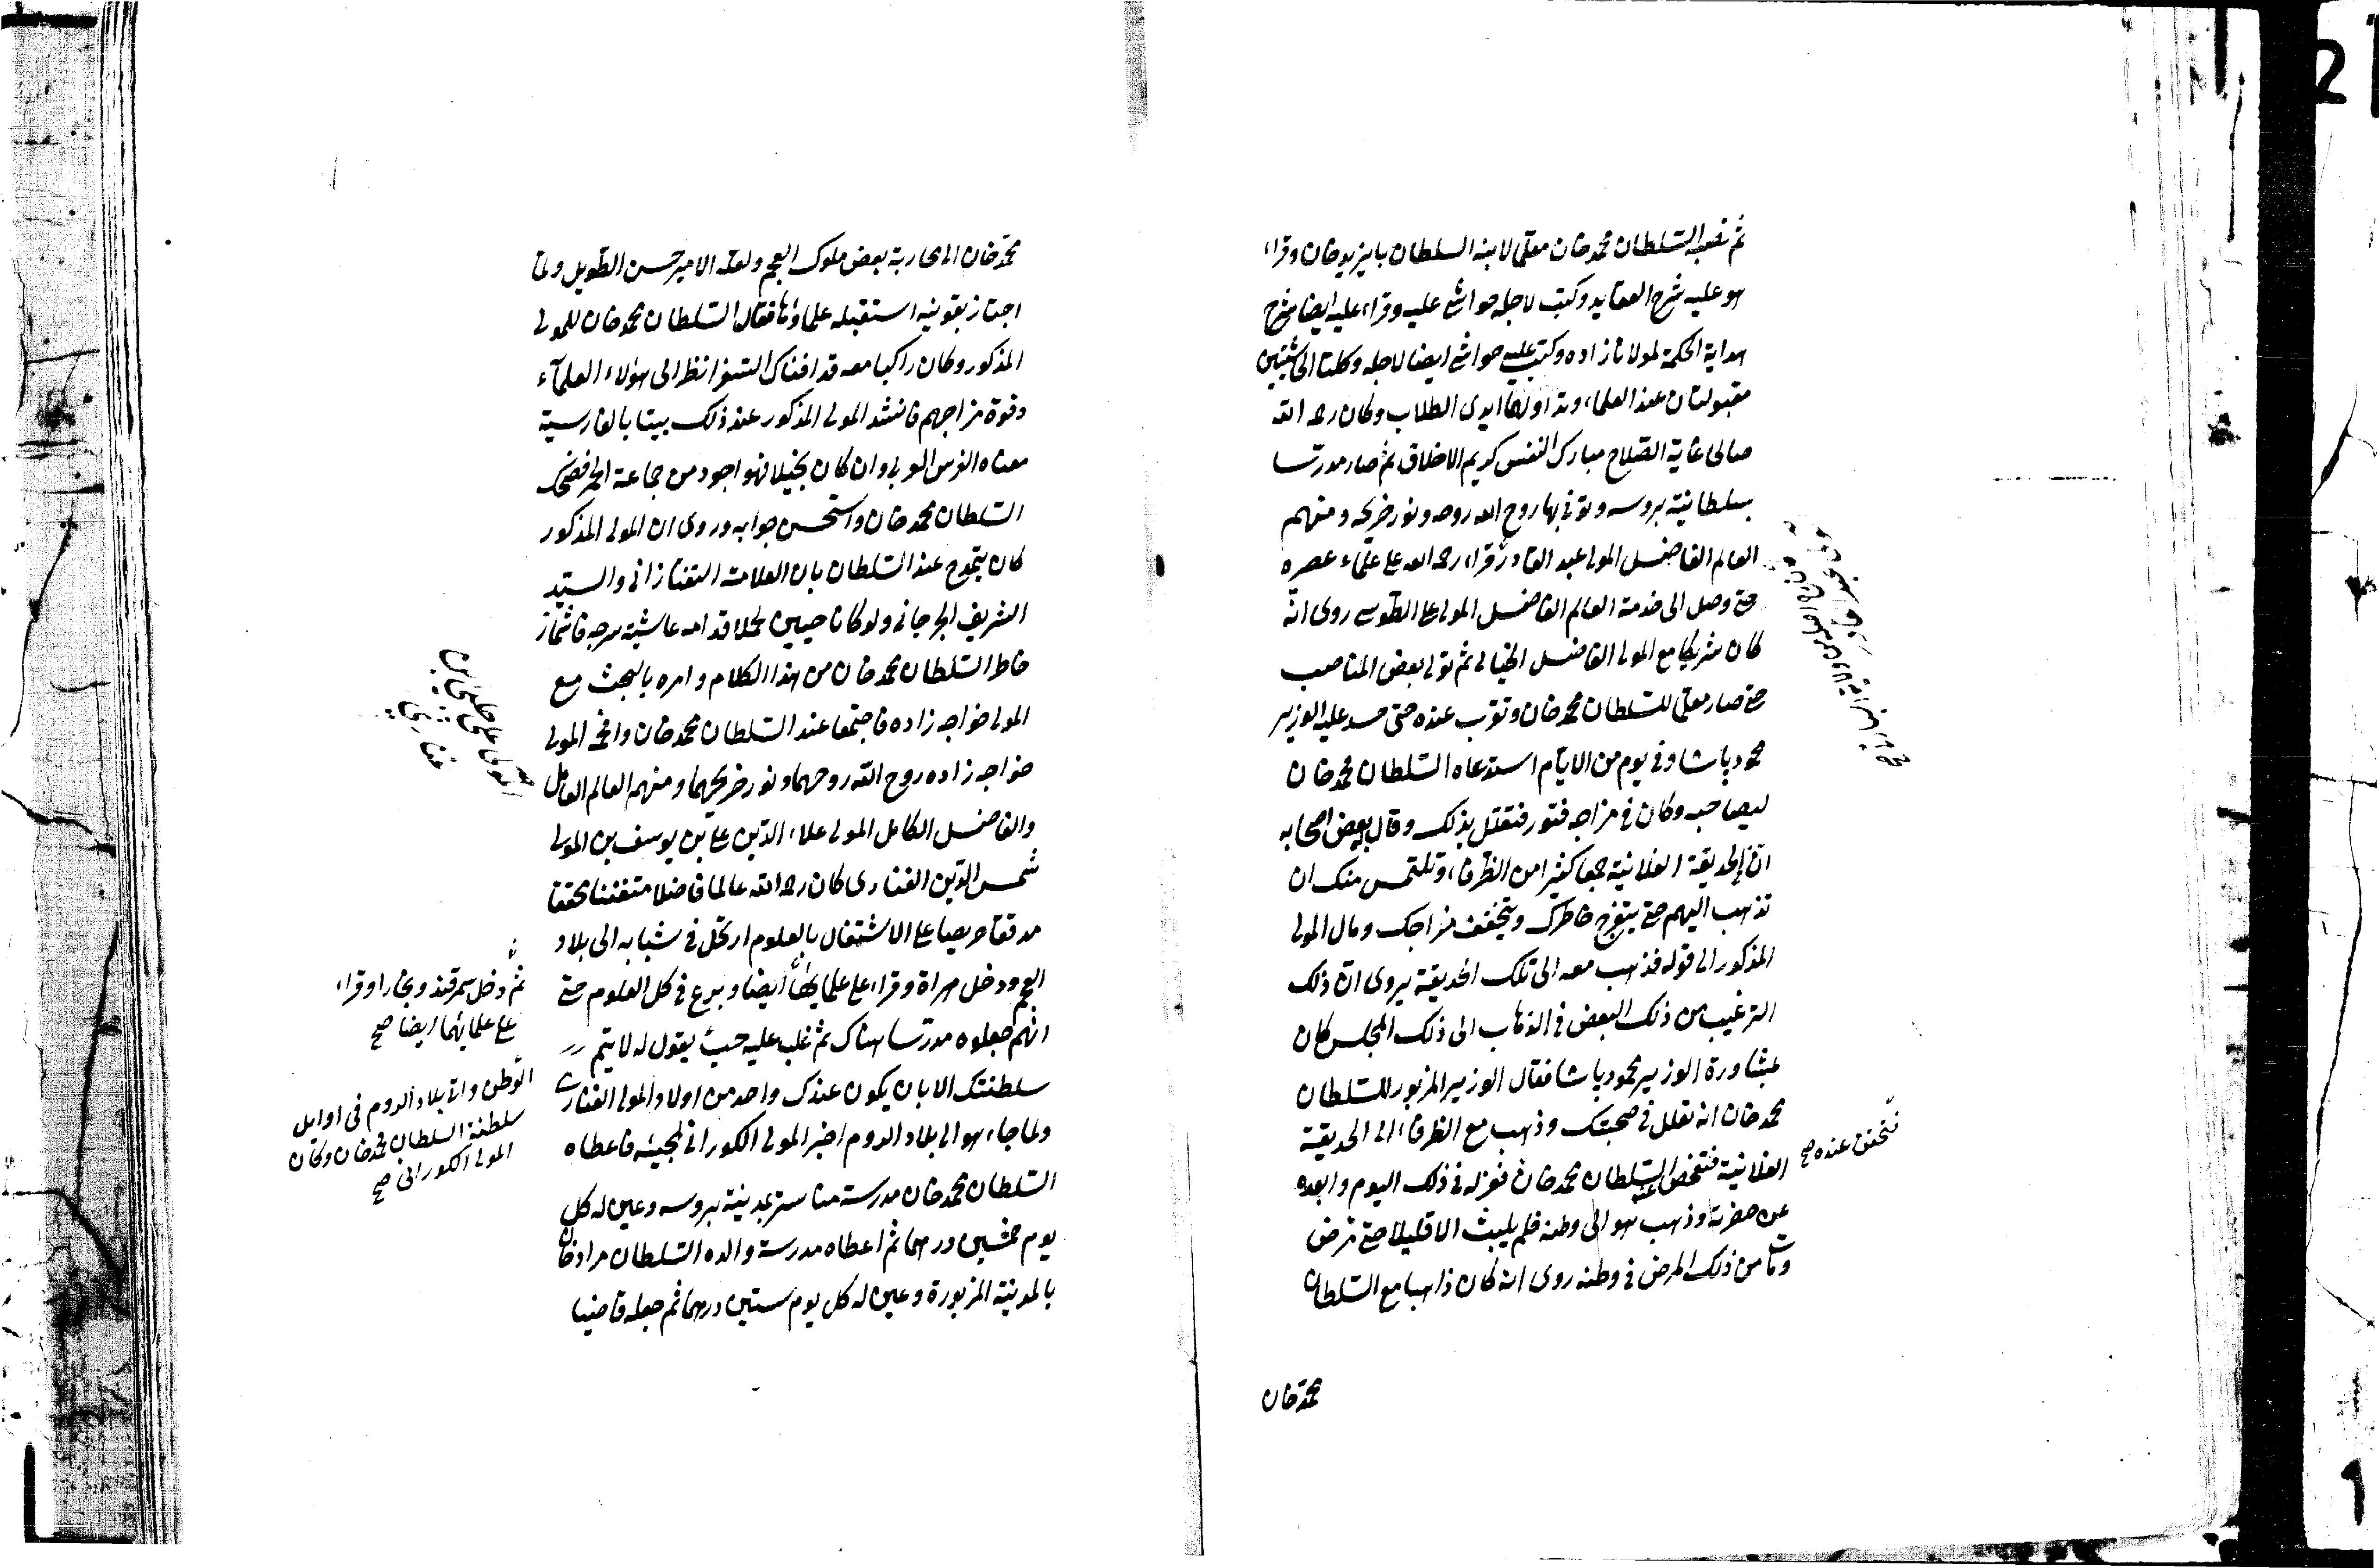 ثم نصبه السلطان محمد خان معلما لابنه السلطان بايزيد خان وقراء
هو عليه شرح العقايد وكتب لاجله حواشي عليه وقراء عليه ايضا شرح
هداية الحكمة لمولانا زاده وكتب عليه حواشي ايضا لاجله وكلتا الحاشيتين
مقبولتان عند العلماء وتداولهما ايدى الطلاب وكان رحمه الله
صالحا غاية الصلاح مبارك النفس كريم الاخلاق ثم صار مدرسا
بسلطانية بروسه وتوفى بها روح الله روحه ونور ضريحه ومنهم
العالم الفاضل المولى عبد القادر قراء رحمه الله على علماء عصره
حتى وصل الى خدمة العالم الفاضل المولى على الطوسى روى انه
كان شريكا مع المولى الفاضل الخيالى ثم تولى بعض المناصب
حتى صار معلما للسلطان محمد خان وتقرب عنده حتى حسد عليه الوزير
محمود باشا وفى يوم من الايام استدعاه السلطان محمد خان
ليصاحبه وكان فى مزاجه فتور فتعلل بذلك وقال له بعض اصحابه
ان فى الحديقة الفلانية جمعا كثيرا من الظرفاء ونلتمس منك ان
تذهب اليهم حتى يتفرج خاطرك ويتخفف مزاجك ومال المولى
المذكور الى قوله فذهب معه الى تلك الحديقة يروى ان ذلك
الترغيب من ذلك البعض فى الذهاب الى ذلك المجلس كان
بمشاورة الوزير محمود باشا فقال الوزير المزبور للسلطان
محمد خان انه تعلل فى صحبتك وذهب مع الظرفاء الى الحديقة
الفلانية فتفحص السلطان محمد خان عنه فعزله فى ذلك اليوم وابعده
فتحقق عنده صح
عن حضرته وذهب هو الى وطنه فلم يلبث الا قليلا حتى مرض
ومات من ذلك المرض فى وطنه روى انه كان ذاهبا مع السلطان
محمد خان
محمد خان الى محاربة بعض ملوك العجم ولعله الامير حسن الطويل ولما
اجتاز بقونيه استقبله علماؤها فقال السلطان محمد خان للمولى
المذكور وكان راكبا معه قد افناك السفر انظر الى هؤلاء العلمآء
وقوة مزاجهم فانشد المولى المذكور عند ذلك بيتا بالفارسية
معناه الفرس العربى وان كان نحيلا فهو اجود من جماعة الحمر فضحك
السلطان محمد خان واستحسن جوابه وروى ان المولى المذكور
كان يتمدح عند السلطان بان العلامة التفتازانى والسيد
الشريف الجرجانى ولو كانا حيين لحملا قدامه غاشية سرجه فاشمأز
خاطر السلطان محمد خان من هذا الكلام وامره بالبحث مع
المولى خواجه زاده فاجتمعا عند السلطان محمد خان وافحم المولى
خواجه زاده روح الله روحهما ونور ضريحهما ومنهم العالم العامل
والفاضل الكامل المولى علاء الدين على بن يوسف بن المولى
المولى على چلبى ابن
فنارى
شمس الدين الفنارى كان رحمه الله عالما فاضلا متفننا محققا
مدققا حريصا على الاشتغال بالعلوم ارتحل فى شبابه الى بلاد
العجم ودخل هراة وقراء على علمائها ايضا وبرع فى كل العلوم حتى
ثم دخل سمرقند وبخارا وقراء
على علمائهما ايضا صح
انهم جعلوه مدرسا هناك ثم غلب عليه حب يقول له لا يتم
الوطن واتى بلاد الروم فى اوايل
سلطنة السلطان محمد خان وكان
المولى الكورانى صح
سلطنتك الا بان يكون عندك واحد من اولاد المولى الفنارى
ولما جاء هو الى بلاد الروم اخبر المولى الكورانى بمجيئه فاعطاه
السلطان محمد خان مدرسة مناستر بمدينة بروسه وعين له كل
يوم خمسين درهما ثم اعطاه مدرسة والده السلطان مراد خان
بالمدينة المزبورة وعين له كل يوم ستين درهما ثم جعله قاضيا